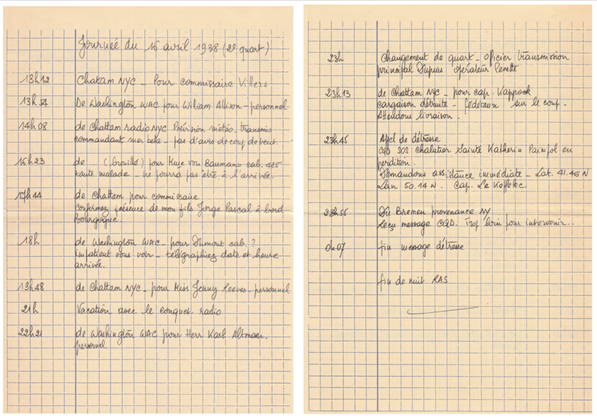 Journée du 16 avril 1938 (2e quart)
13h12 Chatam NYC - Pour commissaire Villers
13h54 De Washington WAC pour William Allison - personnel
14h08 de Chattam radio NYC Prévision météo. transmis
commandant - pas d'avis de coup de vent.
16h23 de (brouillé) pour Mlle von Baumans cab. 425
tante malade - ne pourra pas être à l'arrivée.
17h44 de Chattam pour commissaire
confirmer présence de mon fils Jorge Pascal à bord
Bourgogne
18h de Washington WAC - pour Dumont cab. ?
Impatient vous voir - télégraphiez date et heure
arrivée.
19h48 de Chattam NYC - pour Miss Jenny Reeves - personnel
21h Vacation avec le radio
22h21 de Washington WAC pour Herr Karl
personnel
23h Changement de quart - officier transmission
principal Dupues opérateur Perette
23h13 de Chattam NYC - pour cap.
cargaison détruite - sur le coup.
Attendons livraison.
23h45 Appel de détresse
CQD SOS Chalutier Sainte Katherin Paimpol en
perdition.
Demandons assistance immédiate - Lat. 41.46 N
Lon 50.14 W. Cap.
23h56 Du Bremen provenance NY
Reçu message CQD. trop loin pour intervenir...
0h07 fin message détresse
fin de nuit RAS